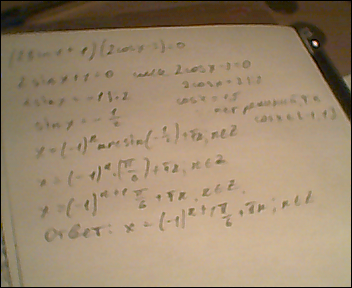 (2sinx+1)(2cosx-3)=0
2sinx+1=0 или 2cosx-3=0
2sinx=-1 |:2 2cosx=3 |:2
sinx=-1/2 cosx=1,5
нет решений, т.к.
cosx∈[-1;1]
x=(-1)ⁿarcsin(-1/2)+πn, n∈Z
x=(-1)ⁿ·(-π/6)+πn, n∈Z
x=(-1)ⁿ⁺¹ π/6+πn, n∈Z.
Ответ: x=(-1)ⁿ⁺¹ π/6+πn; n∈Z